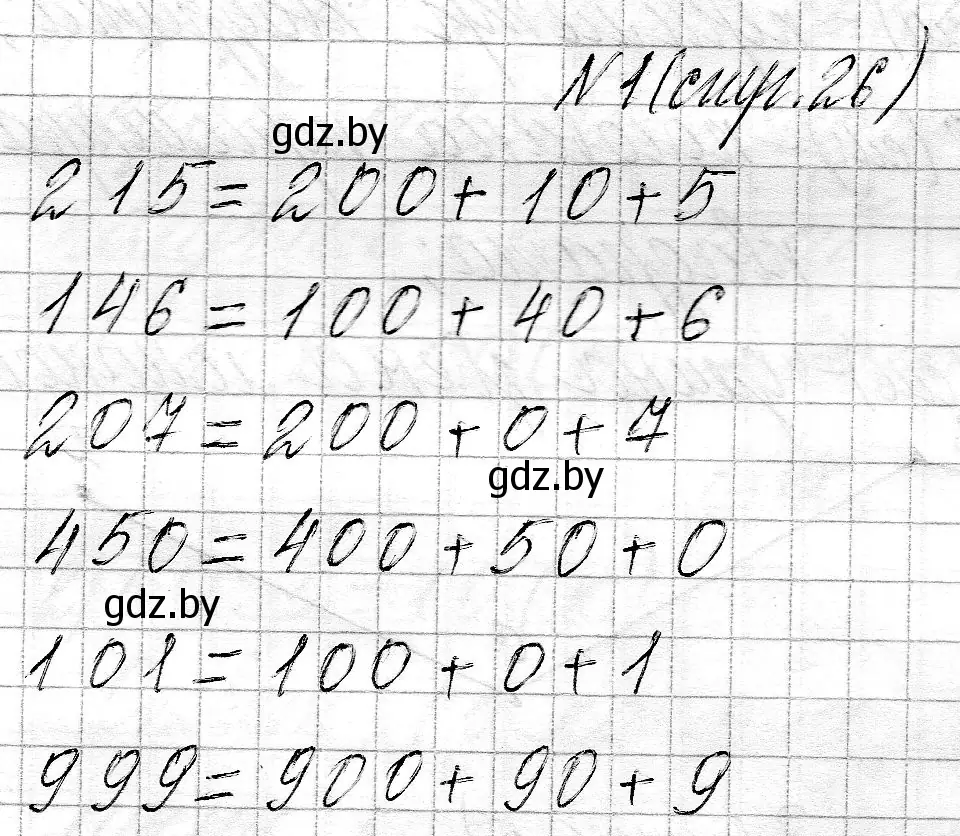 №1 (стр. 26)
gdz.by
215 = 200 + 10 + 5
146 = 100 + 40 + 6
207 = 200 + 0 + 7
gdz.by
450 = 400 + 50 + 0
gdz.by
101 = 100 + 0 + 1
999 = 900 + 90 + 9